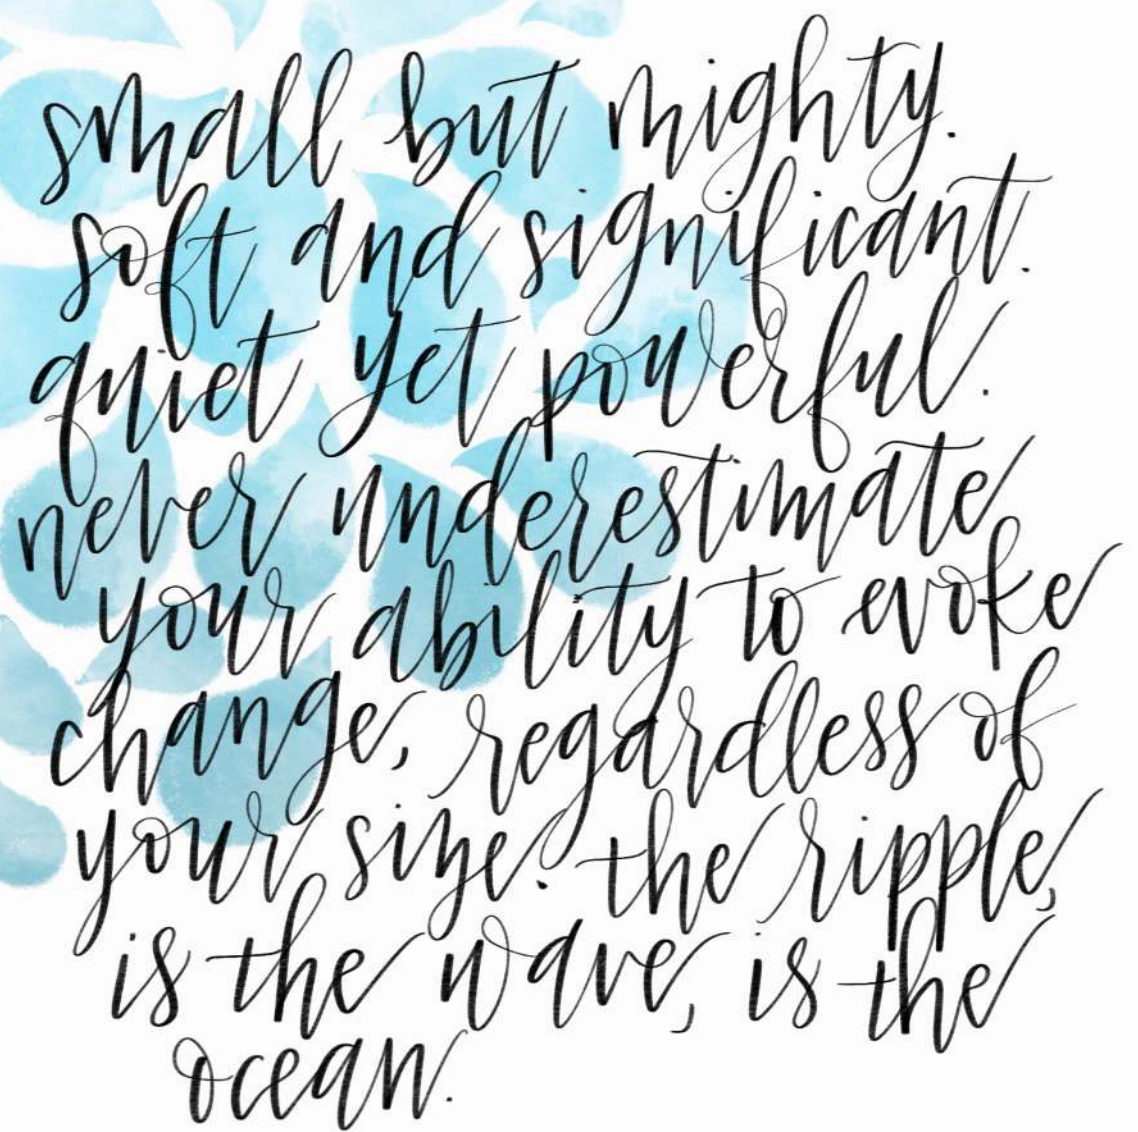 small but mighty.
soft and significant.
quiet yet powerful.
never underestimate
your ability to evoke
change, regardless of
your size. the ripple,
is the wave, is the
ocean.